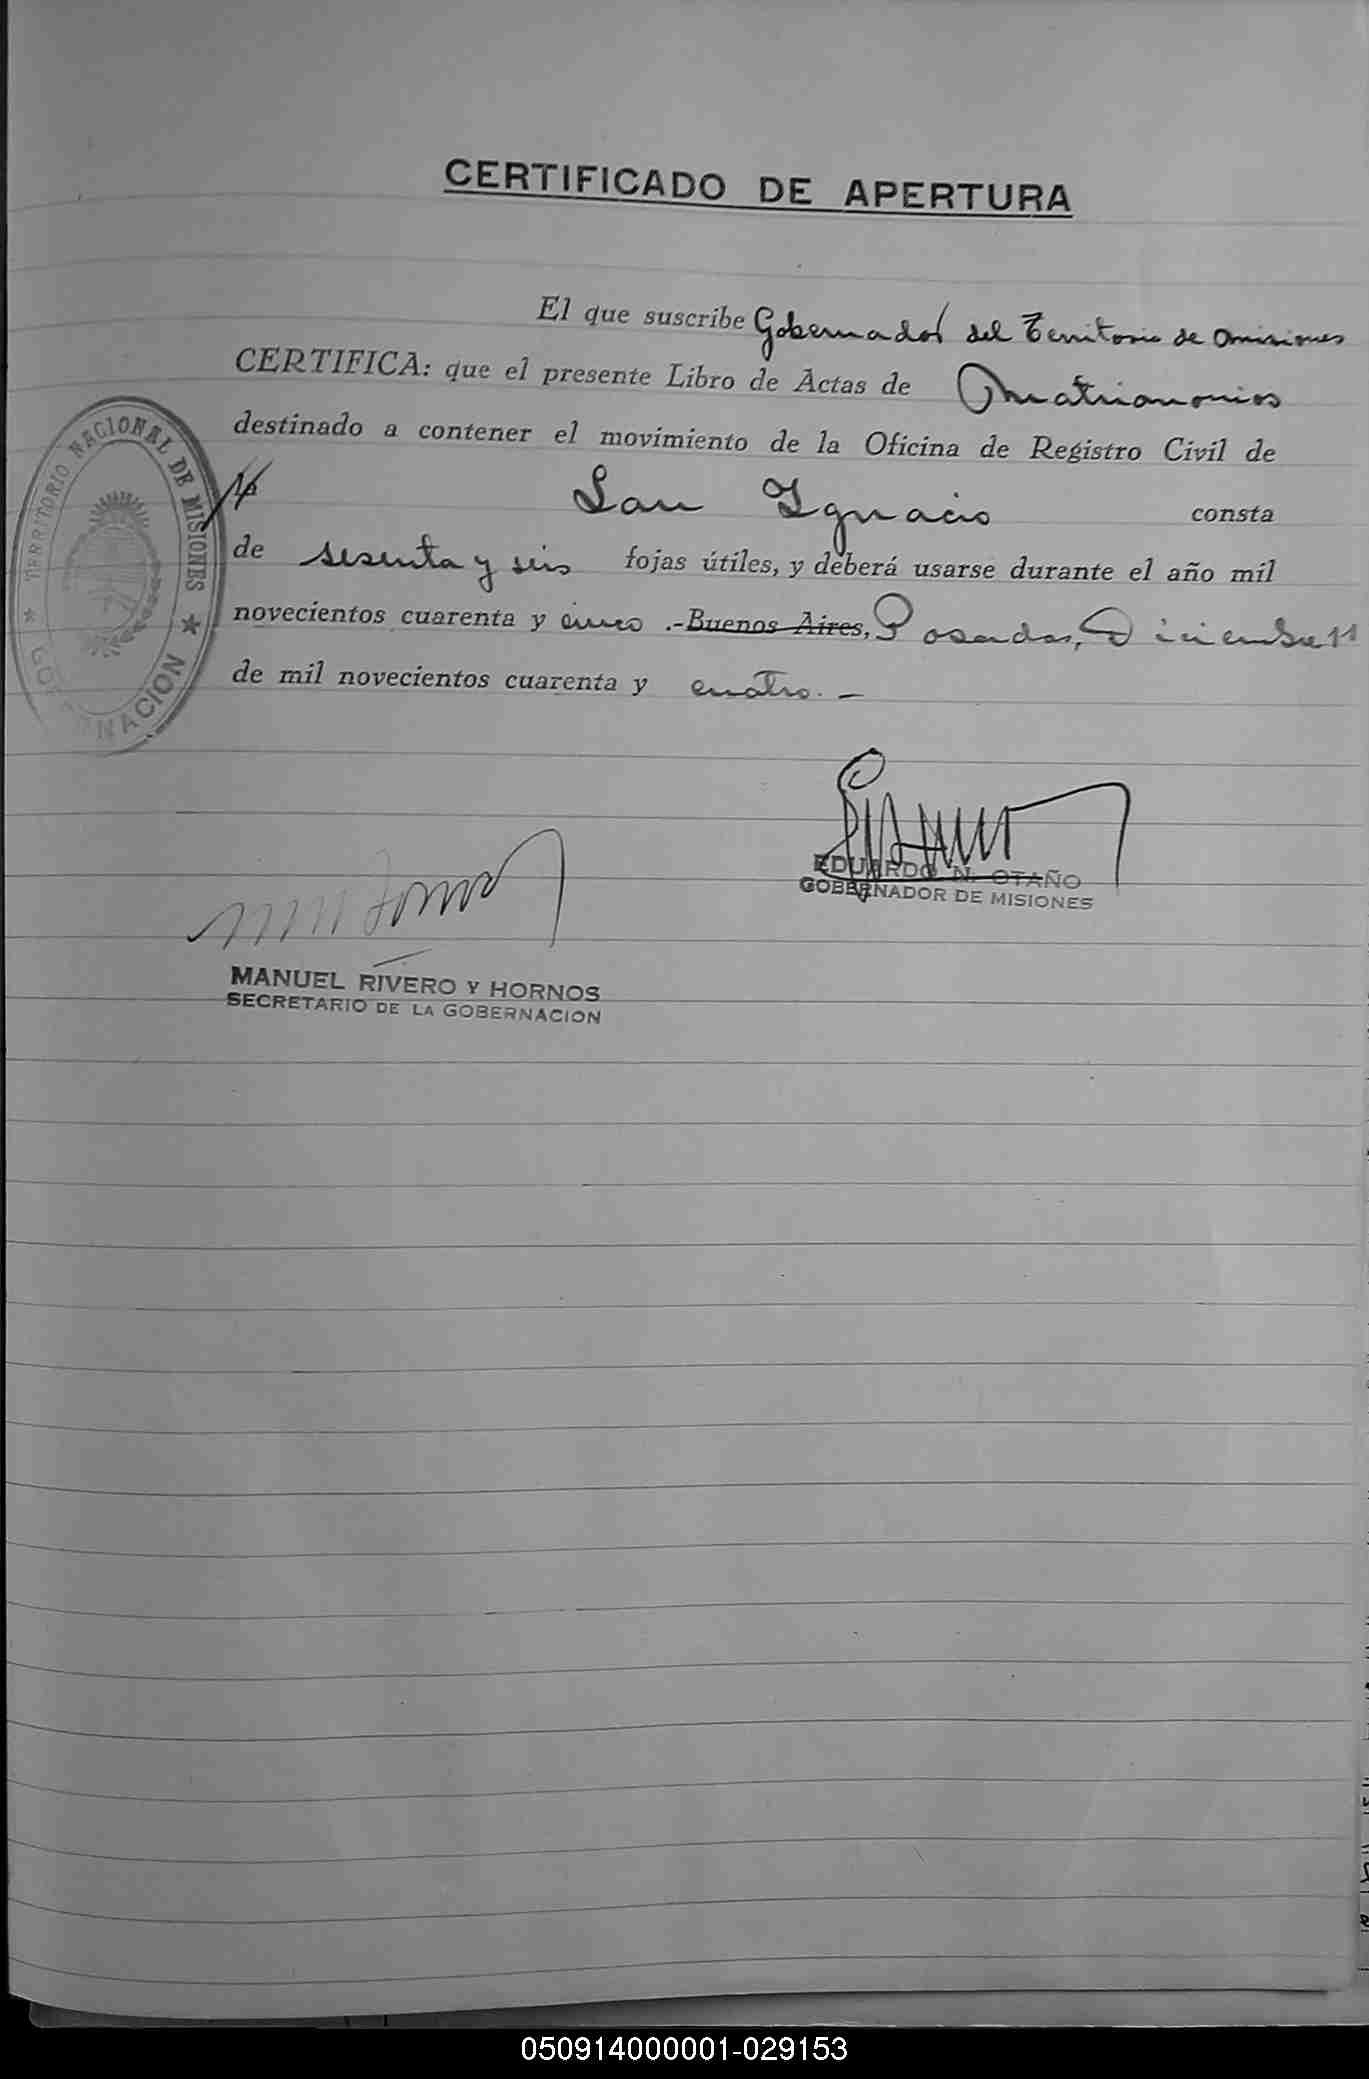 CERTIFICADO DE APERTURA
El que suscribe Gobernador del Territorio de Misiones
CERTIFICA: que el presente Libro de Actas de Matrimonios
destinado a contener el movimiento de la Oficina de Registro Civil de
San Ygnacio consta
de sesenta y seis fojas útiles, y deberá usarse durante el año mil
novecientos cuarenta y cinco .-Buenos Aires, Posadas, Diciembre 11
de mil novecientos cuarenta y cuatro. -
TERRITORIO NACIONAL DE MISIONES
* GOBERNACION *
EDUARDO N. OTAÑO
GOBERNADOR DE MISIONES
MANUEL RIVERO Y HORNOS
SECRETARIO DE LA GOBERNACION
050914000001-029153